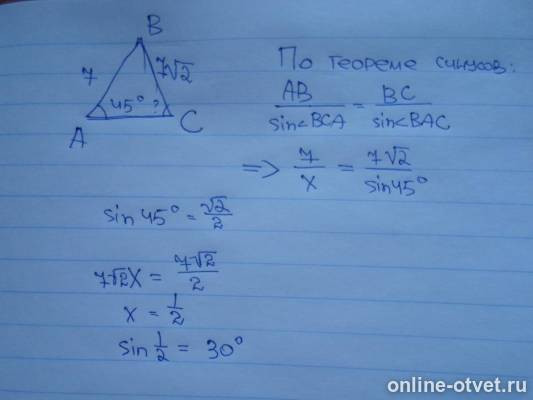 B
7
7√2
45°
?
A
C
По теореме синусов:
AB / sin<BCA = BC / sin<BAC
=> 7 / x = 7√2 / sin45°
sin 45° = √2 / 2
7√2x = 7√2 / 2
x = 1/2
sin 1/2 = 30°
online-otvet.ru